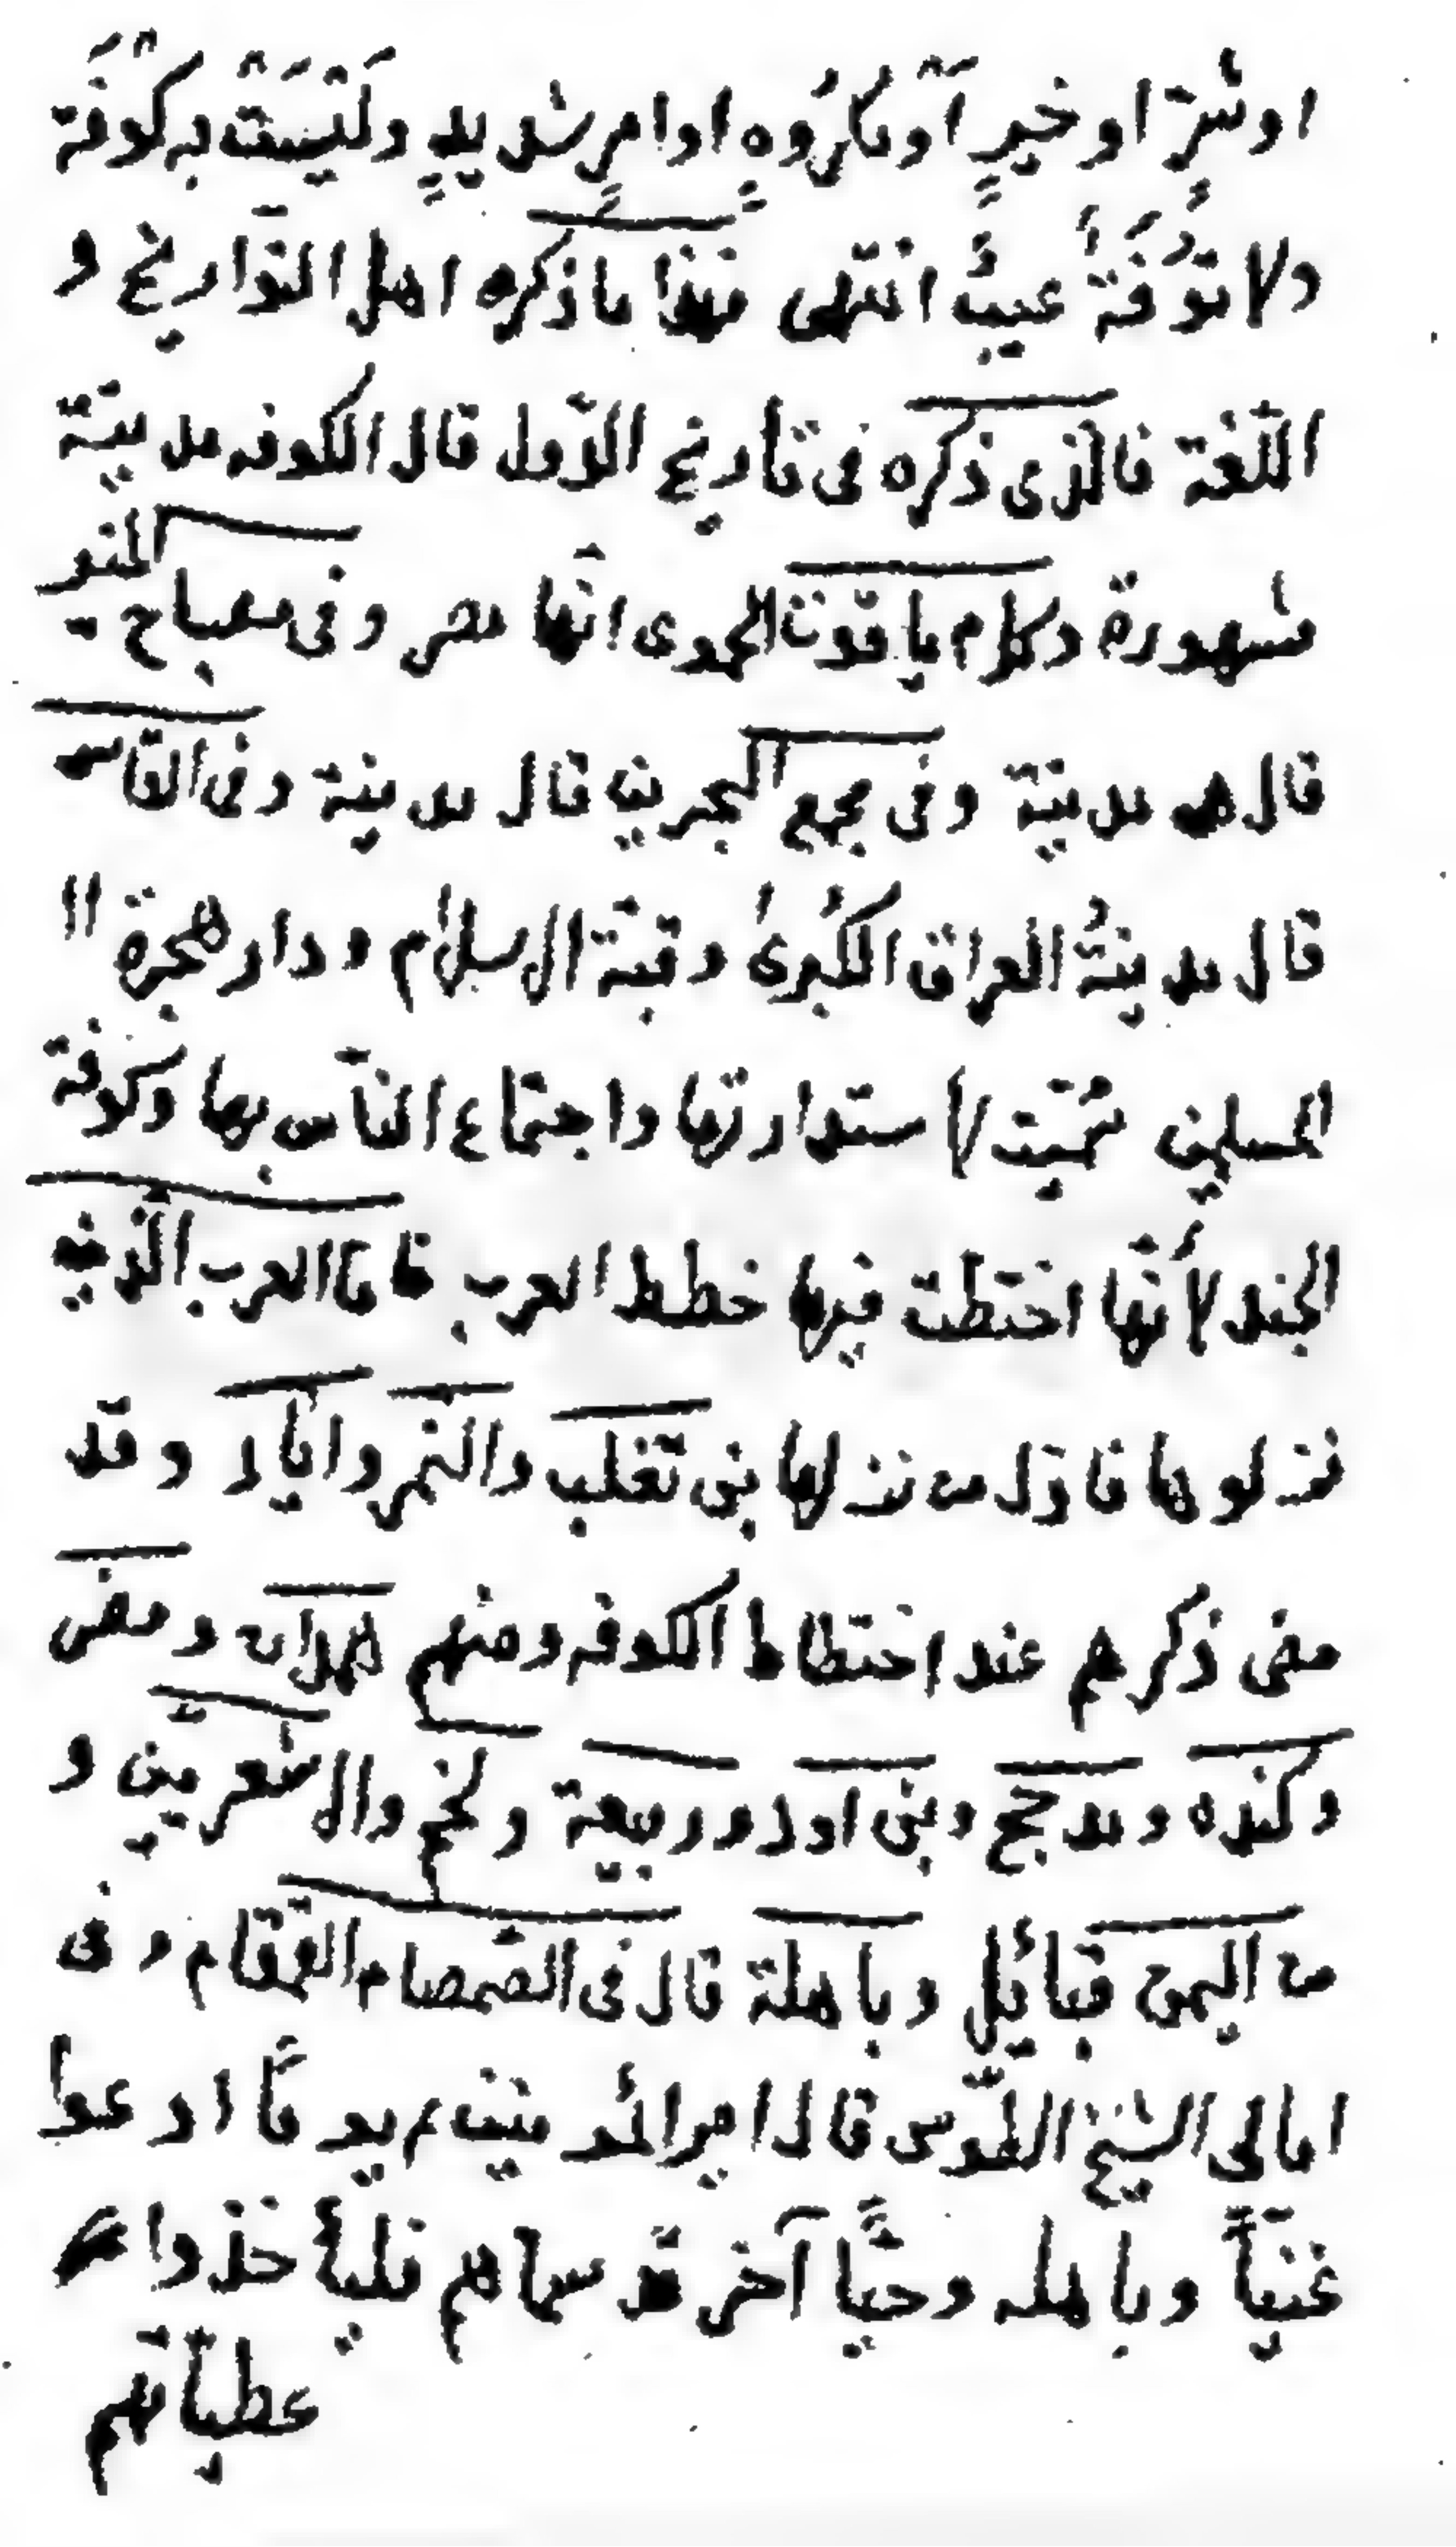 او شرّ او خيرٍ آو مكرُوهٍ او امرٍ شديدٍ ولَيْسَتْ به كُوْفَة
ولا تُوفَةٌ عيبٌ انتهى فهذا ما ذكره اهل التّواريخ و
اللّغة فالذى ذكره فى تأريخ الدّول قال الكوفه مدينة
مشهورة وكلام ياقوت الحموى انّها مصر وفى مصباح المنير
قال هى مدينة وفى مجمع البحرين قال مدينة وفى القاموس
قال مدينةُ العراق الكُبرىٰ وقبّة الاسلام ودار هجرة
المسلمين سُمّيت لاستدارتها واجتماع النّاس بها وكوفة
الجند لأنّها اختطت فيها خطط العرب فاما العرب الّذين
نزلوها فاوّل من نزلها بنى تغلب والنّمر واياد وقد
مضى ذكرهم عند اختطاط الكوفه ومنهم همدان ومضر
وكنده ومدحج وبنى اود وربيعة ولخم والاشعريّين و
من اليمن قبائيل وباهلة قال فى الصّمصام القمّقام وفى
امالى الشيخ الطّوسى قال امير المؤمنين م يومًا ادعوا
غنيّاً وباهله وحيًّا آخر قد سماهم فليأخذوا
عطياتهم